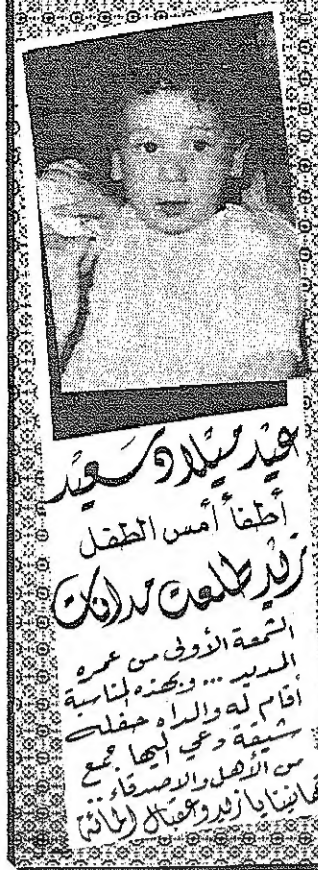 عيد ميلاد سعيد
أطفأ أمس الطفل
زيد طلعت مدانات
الشمعة الأولى من عمره
المديد ... وبهذه المناسبة
أقام له والداه حفلة
شيقة دعي اليها جمع
من الأهل والاصدقاء ..
تهانينا يا زيد وعقبال المائة